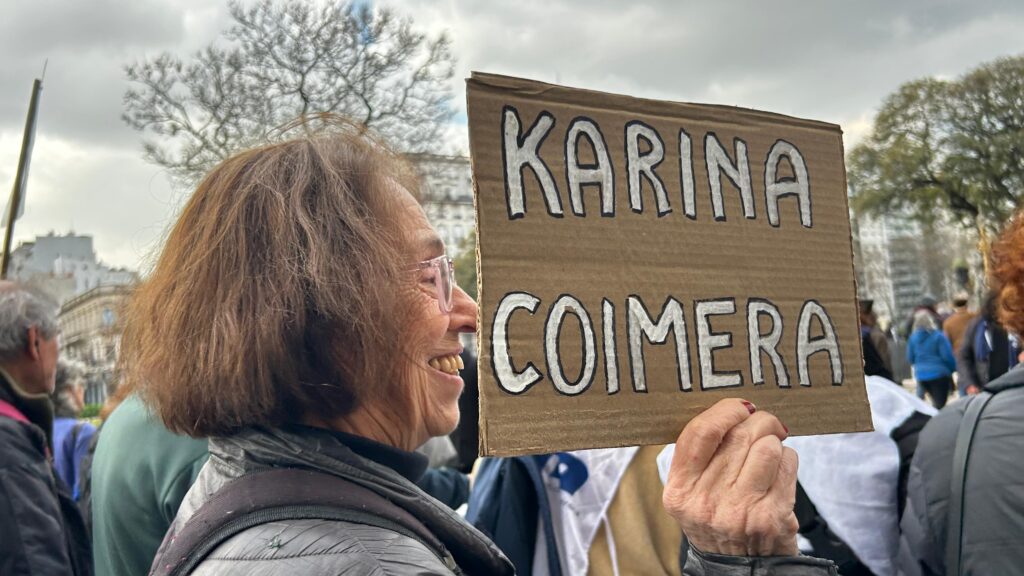 KARINA
COIMERA